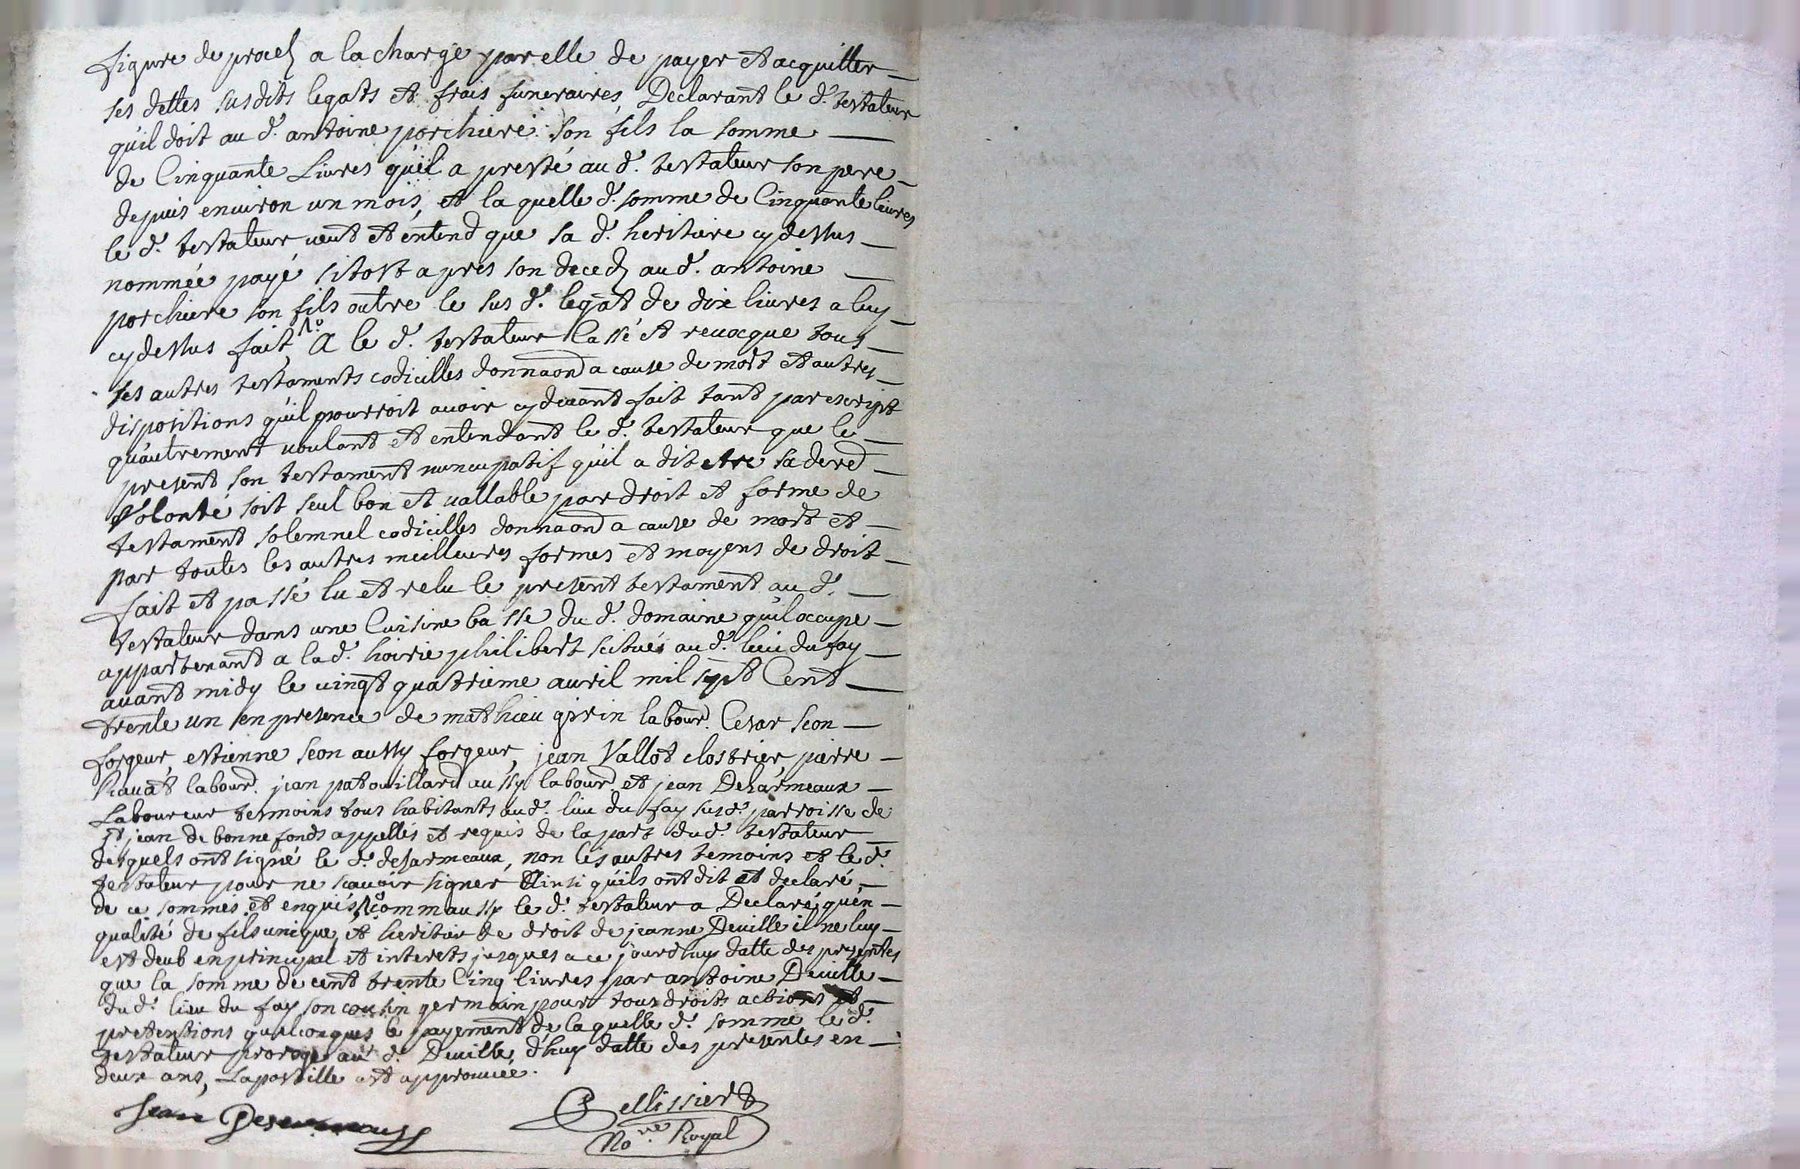 figure de proces a la charge par elle de payer et acquitter
ses dettes susdits legats et frais funeraires, Declarant le d. testateur
qu'il doit au d. antoine porchiere son fils la somme
de Cinquante Livres qu'il a presté au d. testateur son pere
depuis environ un mois, et la quelle d. somme de Cinquante livres
le d. testateur veut et entend que sa d. heritiere cy dessus
nommée payé sitost apres son deced au d. antoine
porchiere son fils outre le sus d. legat de dix livres a luy
cy dessus fait, A le d. testateur Cassé et revocque tous
ses autres testaments codicilles donnaond a cause de mort et autres
dispositions qu'il pourroit avoir cy devant fait tant par escript
qu'autrement voulant et entendant le d. testateur que le
present son testament nuncupatif qu'il a dit etre sa dered
Volonté soit seul bon et vallable par droit et forme de
testament solemnel codicilles donnaond a cause de mort et
par toutes les autres meilleures formes et moyens de droit
fait et passé lu et relu le present testament au d.
testateur dans une Cuisine basse du d. domaine qu'il occupe
appartenant a la d. hoirie philibert scitués au d. lieu du fay
avant midy le vingt quatrieme avril mil sept Cent
trente un en presence de mathieu girin labour. Cesar seon
forgeur, estienne seon aussy forgeur, jean Vallot clostrier, pierre
Ravat labour. jean patouillard aussy labour. et jean Desarmeaux
Laboureur tesmoins tous habitants au d. lieu du fay susd. parroisse de
st jean de bonnefonds appellés et requis de la part du d. testateur
desquels ont signé le d. desarmeaux, non les autres temoins et le d.
testateur pour ne scavoir signer Ainsi qu'ils ont dit et declaré,
de ce sommés et enquis, comm aussy le d. testateur a Declaré qu'en
qualité de fils unique et heritier de droit de jeanne Deville il ne luy
est deub en principal et interets jusques a ce jourd'huy datte des presentes
que la somme de cent trente Cinq livres par antoine Deville
du d. lieu du fay son cousin germain pour tous droits actions et
pretentions quelconques le payement de la quelle d. somme le d.
testateur proroge au d. Deville, d'huy datte des presentes en
deux ans, Lapostille est approuvée.
Jean Desarmeaux
Pellissier
No.re Royal